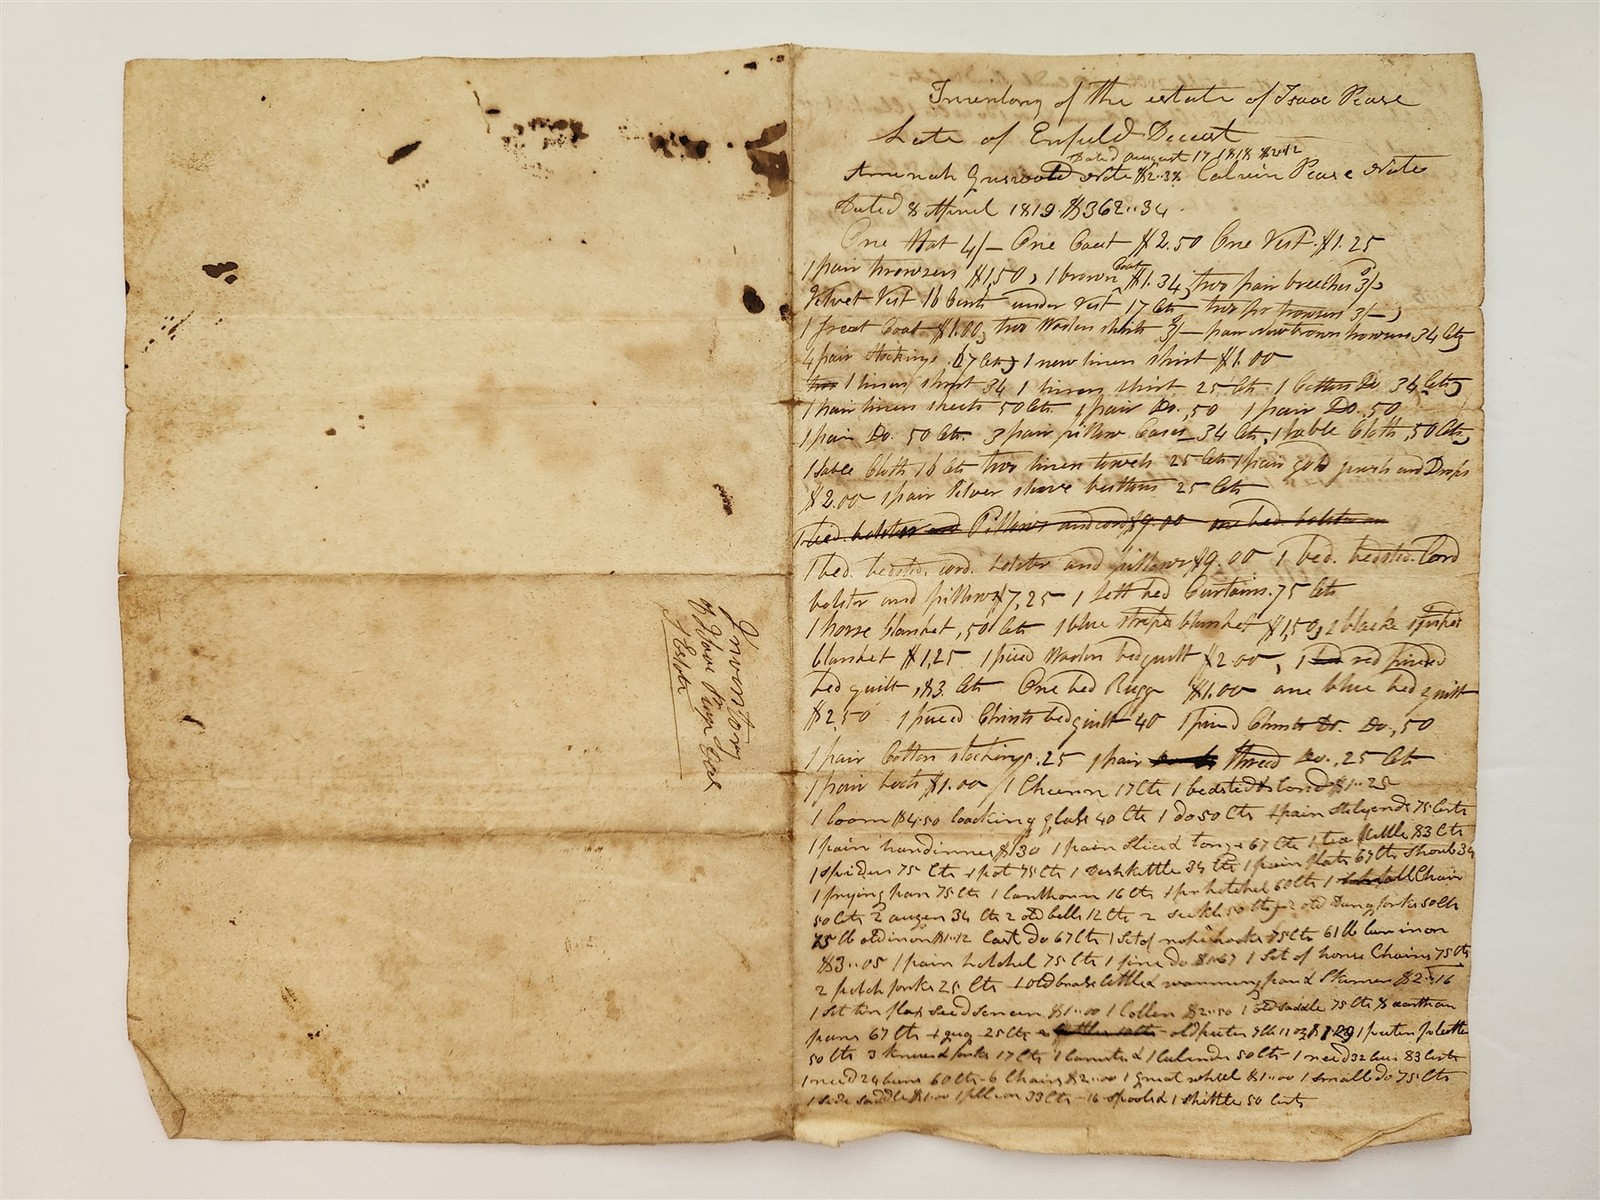 Inventory of the estate of Isaac Pease
Late of Enfield Deceast
Dated August 17 1818 $2..12
Griswold Note $2..38 Calvin Pease Note
Dated 8 April 1819 $362..34
One Hat 4/– One Coat $2.50 One Vest $1.25
1 pair trowzers $1,50, 1 brown Coat $1.34, two pair breeches 3/
Velvet Vest 16 Cents under Vest 17 Cts two pr trowsers 3/–,
1 great Coat $1.00, two Woolen shirts 9/– pair new brown trowsers 34 Cts
4 pair stockings 67 Cts, 1 new linen shirt $1.00
1 linen shirt 34 1 linen shirt 25 Cts 1 Cotton Do 34 Cts,
1 pair linen sheets 50 Cts 1 pair Do. ,50 1 pair Do. ,50
1 pair Do. 50 Cts. 3 pair pillow Cases 34 Cts, 1 table Cloth ,50 Cts,
1 table Cloth 16 Cts two linen towels 25 Cts 1 pair gold jewels and Drops
$2.00 1 pair Silver sleeve buttons 25 Cts
1 bed. bolster and Pillows and cord $9.00 one bed. bolster an
1 bed. bedsted. cord. bolster and pillows $9.00 1 bed. bedsted. Cord
bolster and pillows $7,25 1 Sett bed Curtains. 75 Cts
1 horse blanket ,50 Cts 1 blue striped blanket $1,50, 1 blacke striped
blanket $1,25 1 pieced Woolen bed quilt $2.00, 1 bed red pieced
bed quilt ,83 Cts One bed Rugg $1.00 one blue bed quilt
$2,50 1 pieced Chints bed quilt 40 1 pieced Chints Do. Do. ,50
1 pair Cotton stockings .25 1 pair thread Do. ,25 Cts
1 pair boots $1.00 1 Churn 17 Cts 1 bedsted & Cord $1..25
1 loom $4.50 loocking glass 40 Cts 1 do 50 Cts 1 pair Stilyards 75 Cents
1 pair handirons $1.30 1 pair Slice & tongs 67 Cts 1 tea kettle 83 Cts
1 spider 75 Cts 1 pot 75 Cts 1 Dishkettle 34 Cts 1 pair flats 67 Cts Shovel 34
1 frying pan 75 Cts 1 lanthorn 16 Cts 1 pr hetchel 60 Cts 1 Chair
50 Cts 2 augers 34 Cts 2 old bells 12 Cts 2 50 Cts 2 old Dung forks 50 Cts
75 lb old iron $1..12 Cast Do 67 Cts 1 Set of hooks 75 Cts 61 lb iron
$3..05 1 pair hetchel 75 Cts 1 fine do $1..67 1 Set of horse Chains 75 Cts
2 pitch forks 25 Cts 1 old brass kettle & warming pan & Skimer $2..16
1 Set ten flax seed $1..00 1 Coller $2..50 1 old saddle 75 Cts 8 earthan
pans 67 Cts 1 gug 25 Cts old puter 9 lb 11 oz $1.29 1 puter
50 Cts 3 knives & forks 17 Cts 1 Canister & 1 50 Cts 1 reed 32 83 Cents
1 reed 24 60 Cts 6 Chairs $2..00 1 great wheel $1..00 1 small do 75 Cts
1 side saddle $1..00 1 pillion 33 Cts 16 spools & 1 shittle 50 Cents
Inventory
of Isaac Pease Dec'd
Estate